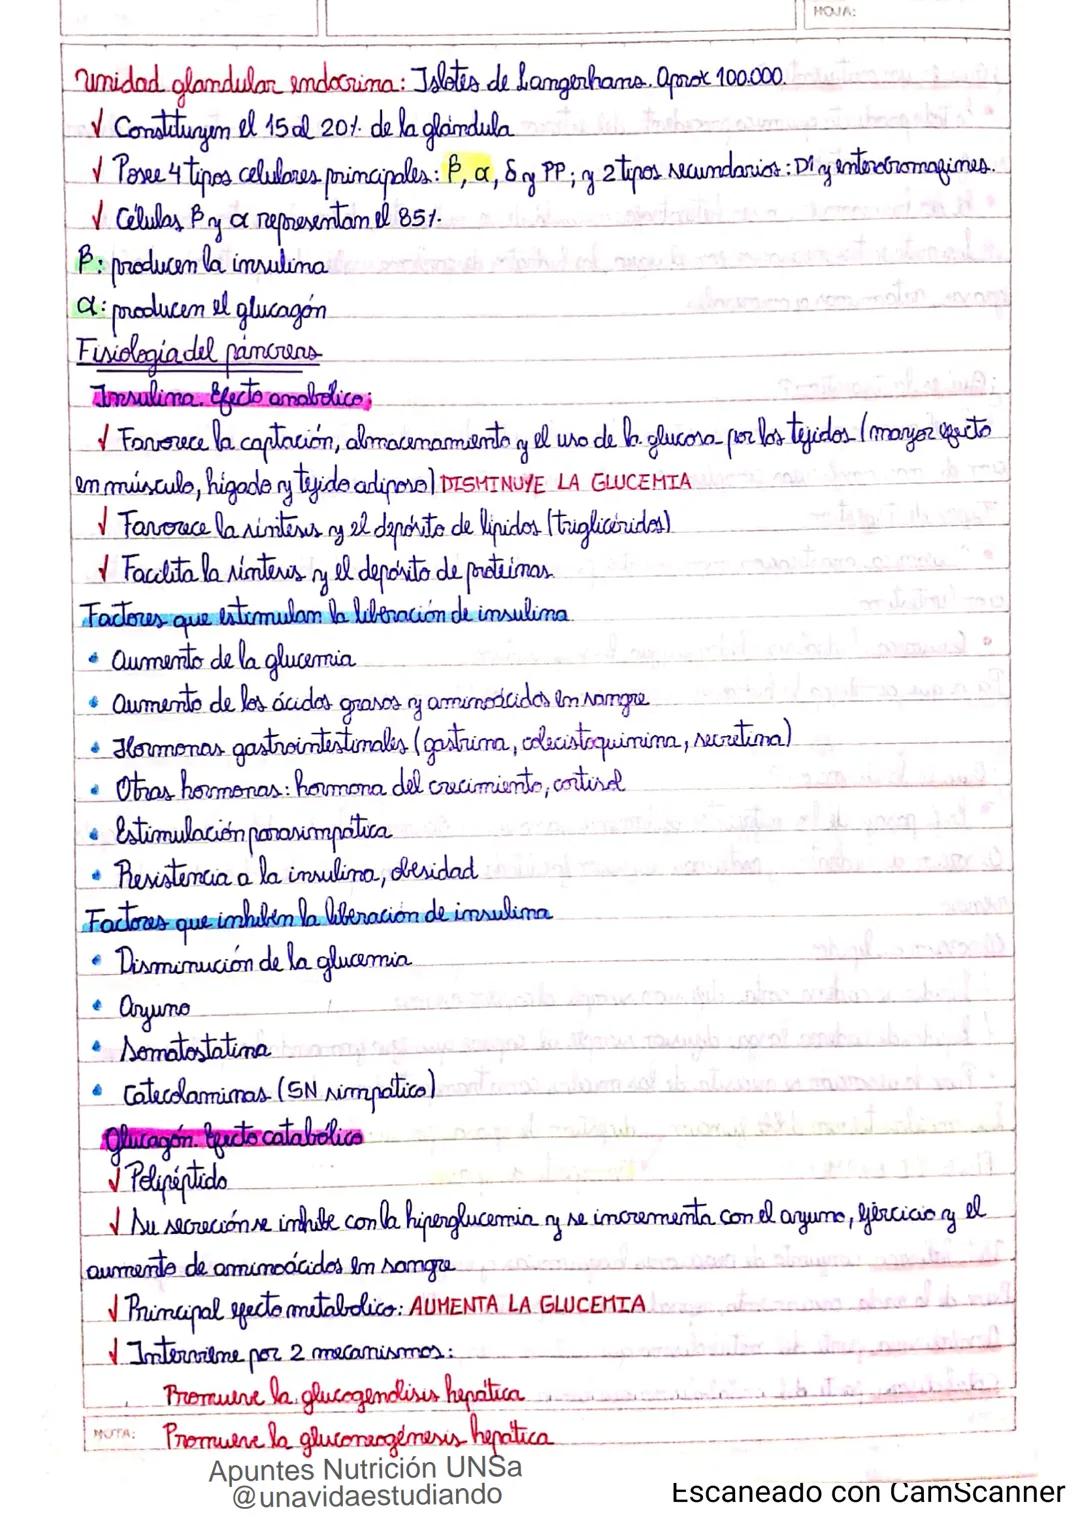 HOJA:
Unidad glandular endocrina: Islotes de Langerhans. Aprox 100.000.
✓ Constituyen el 15 al 20% de la glándula
✓ Posee 4 tipos celulares principales: β, α, δ y PP; y 2 tipos secundarios: D1 y enterocromafines.
✓ Células β y α representan el 85%.
β: producen la insulina
α: producen el glucagón
Fisiología del páncreas
Insulina. Efecto anabólico:
✓ Favorece la captación, almacenamiento y el uso de la glucosa por los tejidos (mayor efecto
en músculo, hígado y tejido adiposo) DISMINUYE LA GLUCEMIA
✓ Favorece la síntesis y el depósito de lípidos (triglicéridos)
✓ Facilita la síntesis y el depósito de proteínas.
Factores que estimulan la liberación de insulina
• Aumento de la glucemia
• Aumento de los ácidos grasos y aminoácidos en sangre
• Hormonas gastrointestinales (gastrina, colecistoquinina, secretina)
• Otras hormonas: hormona del crecimiento, cortisol
• Estimulación parasimpática
• Resistencia a la insulina, obesidad
Factores que inhiben la liberación de insulina
• Disminución de la glucemia
• Ayuno
• Somatostatina
• Catecolaminas (SN simpático)
Glucagón. Efecto catabólico
✓ Polipéptido
✓ Su secreción se inhibe con la hiperglucemia y se incrementa con el ayuno, ejercicio y el
aumento de aminoácidos en sangre
✓ Principal efecto metabólico: AUMENTA LA GLUCEMIA
✓ Interviene por 2 mecanismos:
Promueve la glucogenólisis hepática
NOTA: Promueve la gluconeogénesis hepática
Apuntes Nutrición UNSa
@unavidaestudiando
Escaneado con CamScanner